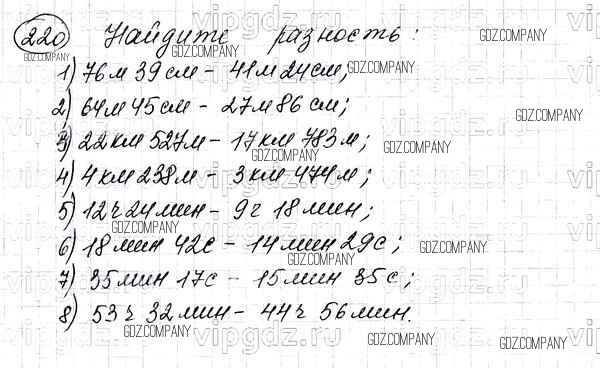 220 Найдите разность:
1) 76м 39см - 41м 24см;
2) 64м 45см - 27м 86см;
3) 22км 527м - 17км 783м;
4) 4км 238м - 3км 474м;
5) 12ч 24мин - 9ч 18мин;
6) 18мин 42с - 14мин 29с;
7) 35мин 17с - 15мин 35с;
8) 53ч 32мин - 44ч 56мин.